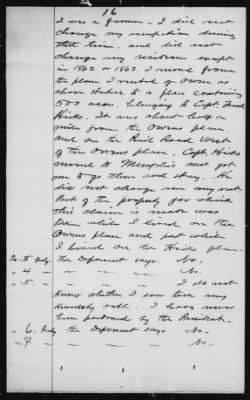 16
I was a farmer. I did not
change my occupation during
that time, and did not
change my residence except
in 1862 or 1863. I moved from
the place I rented of Owens as
above stated to a place containing
500 acres, belonging to Capt. Fred
Hicks. It was about half a
mile from the Owens place,
and on the Rail Road West
of the Owens place. Capt Hicks
moved to Memphis and got
me to go there and stay. He
did not charge me any rent.
Part of the property for which
this claim is made was
taken while I lived on the
Owens place and part while
I lived on the Hicks place.
To 3d Intg the Deponent says. No.
" 4 " " " " No.
" 5 " " " " I do not
know whether I ever took any
amnesty oath. I have never
been pardoned by the President.
" 6. Intg the Deponent says No.
" 7 " " " " No.